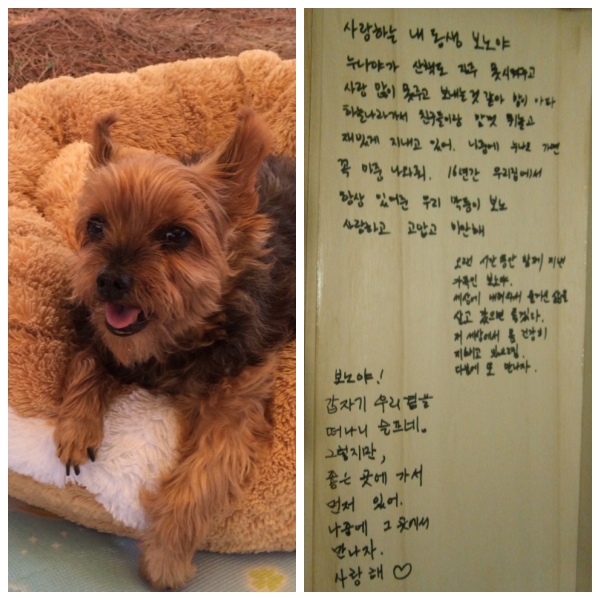 사랑하는 내 동생 보노야
누나야가 산책도 자주 못시켜주고
사랑 많이 못주고 보내는것 같아 맘이 아파
하늘나라가서 친구들이랑 맘껏 뛰놀고
재밌게 지내고 있어. 나중에 누나도 가면
꼭 마중 나와줘. 16년간 우리집에서
항상 있어준 우리 막둥이 보노
사랑하고 고맙고 미안해
오랜 시간동안 함께 지낸
가족인 보노야.
세상에 태어나서 즐거운 삶을
살고 갔으면 좋겠다.
저 세상에서 몸 건강히
지내고 있으렴.
다음에 또 만나자.
보노야!
갑자기 우리 곁을
떠나니 슬프네.
그렇지만,
좋은 곳에 가서
먼저 있어.
나중에 그 곳에서
만나자.
사랑해 ♡